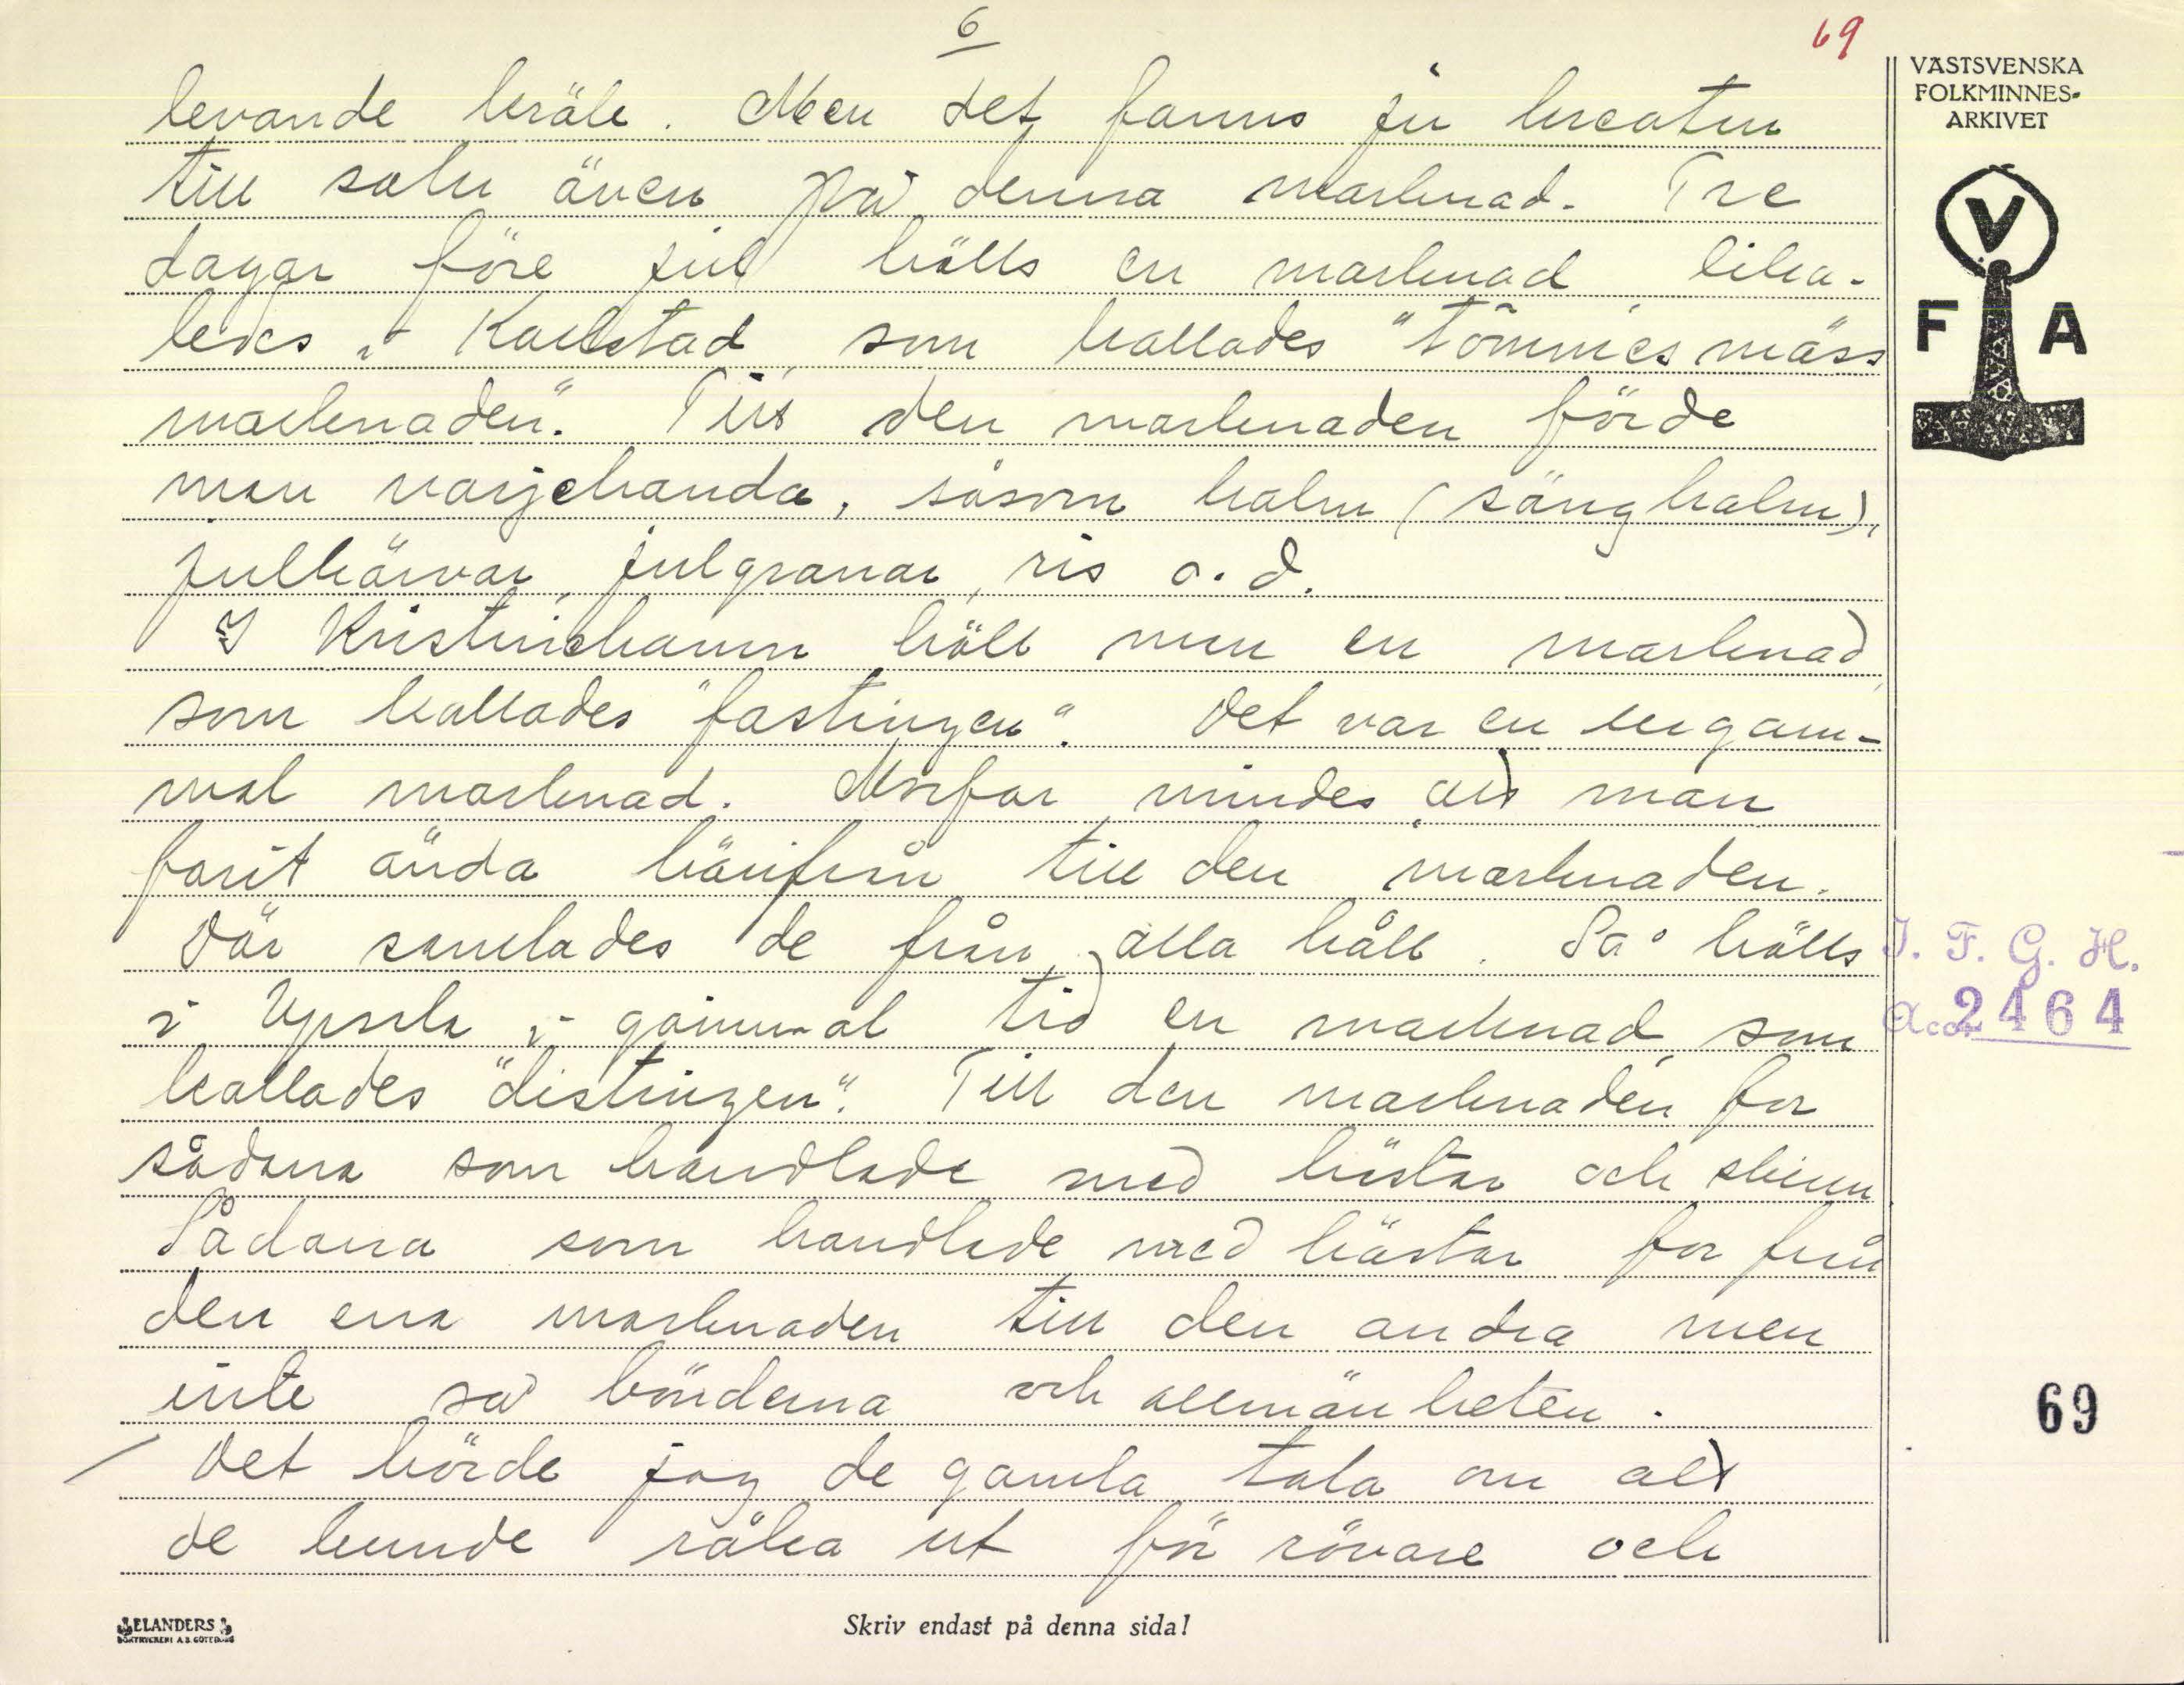 6
69
VÄSTSVENSKA
FOLKMINNES-
ARKIVET
V
F A
levande kräk. Men det fanns ju kreatur
till salu även på denna marknad. Tre
dagar före jul hölls en marknad lika-
ledes i Karlstad, som kallades "tômmesmäss
marknaden". Till den marknaden förde
man varjehanda, såsom halm (sänghalm),
julkärvar, julgranar, ris o.d.
I Kristinehamn höll man en marknad
som kallades "fastingen". Det var en urgam-
mal marknad. Morfar mindes att man
farit ända härifrån till den marknaden.
Där samlades de från alla håll. Så hölls
i Upsala i gammal tid en marknad som
kallades "distingen". Till den marknaden for
sådana som handlade med hästar och skinn
Sådana som handlade med hästar for från
den ena marknaden till den andra men
inte så bönderna och allmänheten.
Det hörde jag de gamla tala om att
de kunde råka ut för rövare och
I. F. G. H.
Acc. 2464
69
ELANDERS
BOKTRYCKERI A.B. GÖTEBORG
Skriv endast på denna sida!